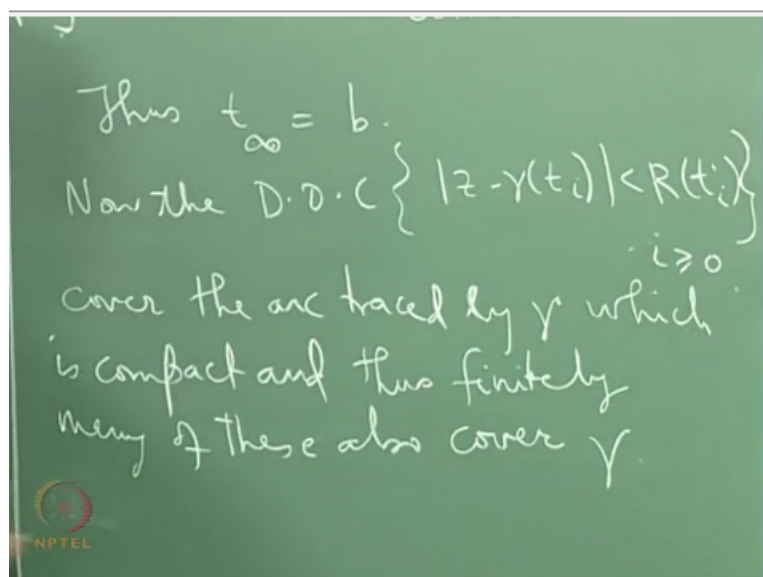 Thus t∞ = b.
Now the D.O.C { |z - γ(ti)| < R(ti) }
i ≥ 0
cover the arc traced by γ which
is compact and thus finitely
many of these also cover γ
NPTEL